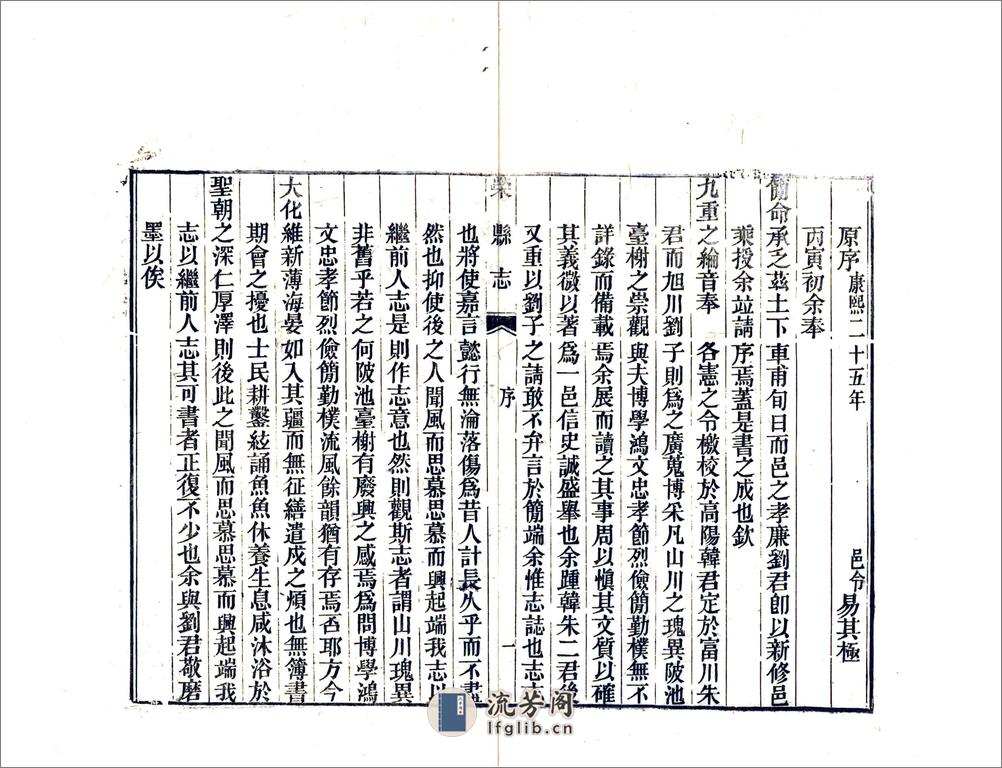 原序康熙二十五年
邑令易其極
丙寅初余奉
簡命承乏茲土下車甫旬日而邑之孝廉劉君卽以新修邑
乘授余竝請序焉蓋是書之成也欽
九重之綸音奉各憲之令檄校於高陽韓君定於富川朱
君而旭川劉子則爲之廣蒐博采凡山川之瑰異陂池
臺榭之景觀與夫博學鴻文忠孝節烈儉簡勤樸無不
詳錄而備載焉余展而讀之其事周以愼其文質以確
其義微以著爲一邑信史誠盛舉也余踵韓朱二君後
又重以劉子之請敢不弁言於簡端余惟志誌也志古
榮縣志
序
一
也將使嘉言懿行無淪落傷爲昔人計長久乎而不盡
然也抑使後之人聞風而思慕思慕而興起端我志以
繼前人志是則作志意也然則觀斯志者謂山川瑰異
非舊乎若之何陂池臺榭有廢興之感焉爲問博學鴻
文忠孝節烈儉簡勤樸流風餘韻猶有存焉否耶方今
大化維新薄海晏如入其疆而無征繕遣戍之煩也無簿書
期會之擾也士民耕鑿絃誦魚魚休養生息咸沐浴於
聖朝之深仁厚澤則後此之聞風而思慕思慕而興起端我
志以繼前人志其可書者正復不少也余與劉君敬磨
墨以俟
流芳阁
lfglib.cn